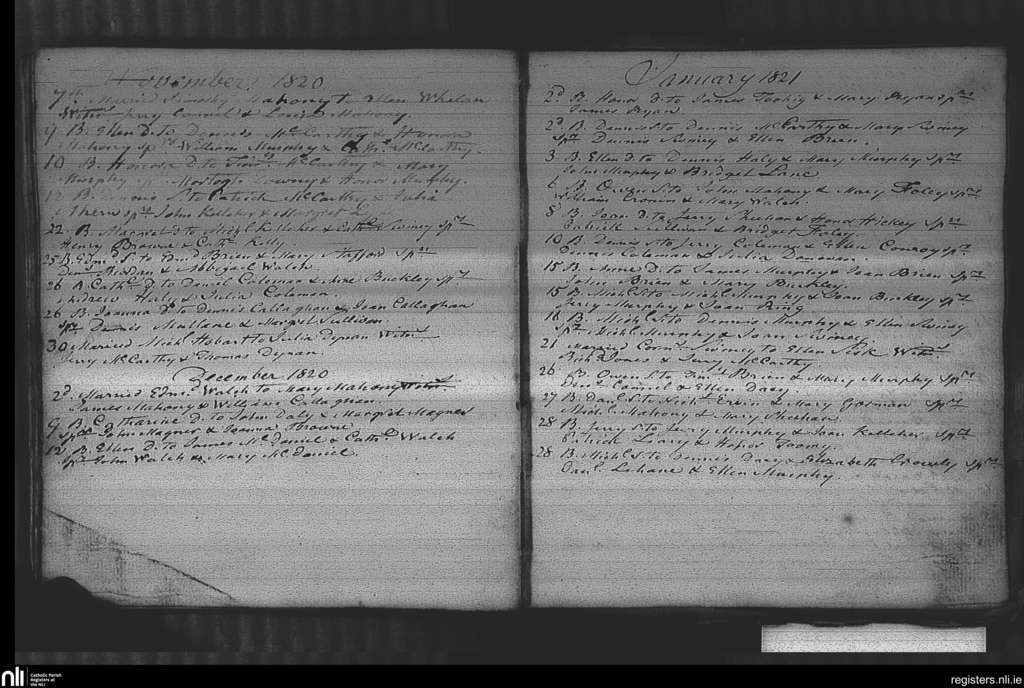 November 1820
7th Married Timothy Mahony to Ellen Whelan
Witns Jerry Connel & Louis Mahony.
9 B. Ellen D. to Dennis McCarthy & Honora
Mahony Sprs William Murphy & Cathe McCarthy.
10 B. Honora D. to McCarthy & Mary
Murphy Sp Mortogh & Honor Murphy.
B. Dennis S. to Patrick McCarthy & Julia
Ahern sprs John Kelleher & Margret
22 B. Margret D. to Michl Kelleher & Cathe Twomey Sprs
Henry Browne & Cathe Kelly.
25 B. Edmd S. to Davd Brien & Mary Stafford Sprs
Denis Riordan & Abbigail Walsh.
26 B. Cathe D. to Daniel Coleman & Anne Buckley Sprs
Andrew Haly & Julia Coleman.
26 B. Joanna D. to Dennis Callaghan & Joan Callaghan
Sprs Dennis Mullane & Margret Sullivan.
30 Married Michl Hobart to Julia Dynan Witns
Jerry McCarthy & Thomas Dynan.
December 1820
2d. Married Edmd. Walsh to Mary Mahony Witns
James Mahony & William Callaghan.
9 B. Catharine D. to John Daly & Margret Magner
Sprs John Magner & Joanna Browne.
12 B. Ellen D. to James McDaniel & Cathe Walsh
Sprs John Walsh & Mary McDaniel.
January 1821
2d B. Hanora D. to James Toohig & Mary Bryan Sprs
James Bryan
2d B. Dennis S. to Dennis McCarthy & Mary Swiney
Sprs Dennis Swiney & Ellen Brien.
3 B. Ellen D. to Dennis Haly & Mary Murphy Sprs
John Murphy & Bridget Lane
6 B. Owen S. to John Mahony & Mary Foley Sprs
William Cronin & Mary Walsh.
8 B. Joan D. to Jerry Sheehan & Hanora Hickey Sprs
Patrick Sullivan & Bridget Finley.
10 B. Dennis S. to Jerry Coleman & Ellen Conroy Sprs
Dennis Coleman & Julia Donovan.
15 B. Anne D. to James Murphy & Joan Brien Sprs
John Brien & Mary Buckley.
15 B. Michl S. to Michl Murphy & Joan Buckley Sprs
Jerry Murphy & Joan Ring
16 B. Michl S. to Dennis Murphy & Ellen Swiney
Sprs Michl Murphy & Joan Swiney.
21 Married Corns Swiney to Ellen Witns
Richd Jones & Jerry McCarthy
26 B. Owen S. to Danl Brien & Mary Murphy Sprs
Denis Connell & Ellen Dacy
27 B. Danl S. to Nichs Erwin & Mary Gorman Sprs
Michl Mahony & Mary Sheehan.
28 B. Jerry S. to Jerry Murphy & Joan Kelleher Sprs
Patrick Leary & Honor Toomy.
28 B. Michl S. to Dennis Dacy & Elizabeth Crowly Sprs
Danl. Lehane & Ellen Murphy.
nli
Catholic Parish
Registers at
the NLI
registers.nli.ie